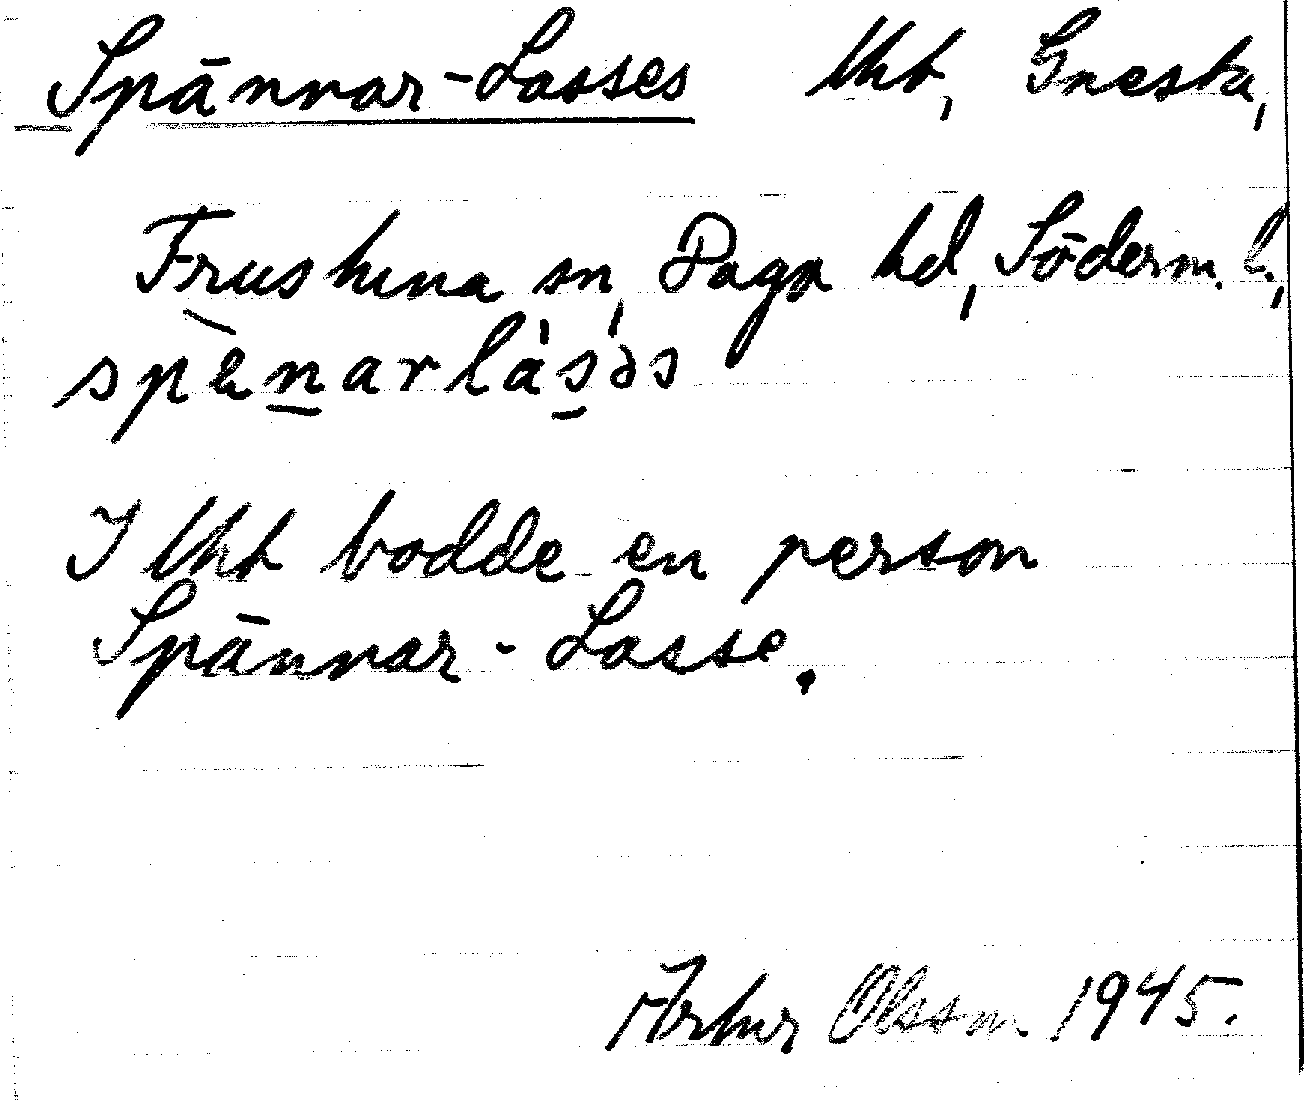 Spännar-Lasses lht, Gnesta,
Frustuna sn, Daga hd, Söderm. l.,
spänarlàsəs
I lht bodde en person
Spännar-Lasse.
Artur Olsson 1945.